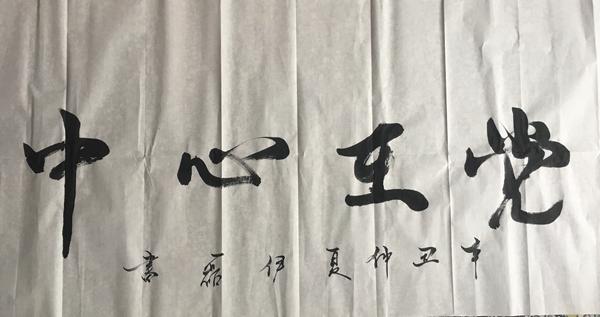 党在心中
辛丑仲夏伊磊書